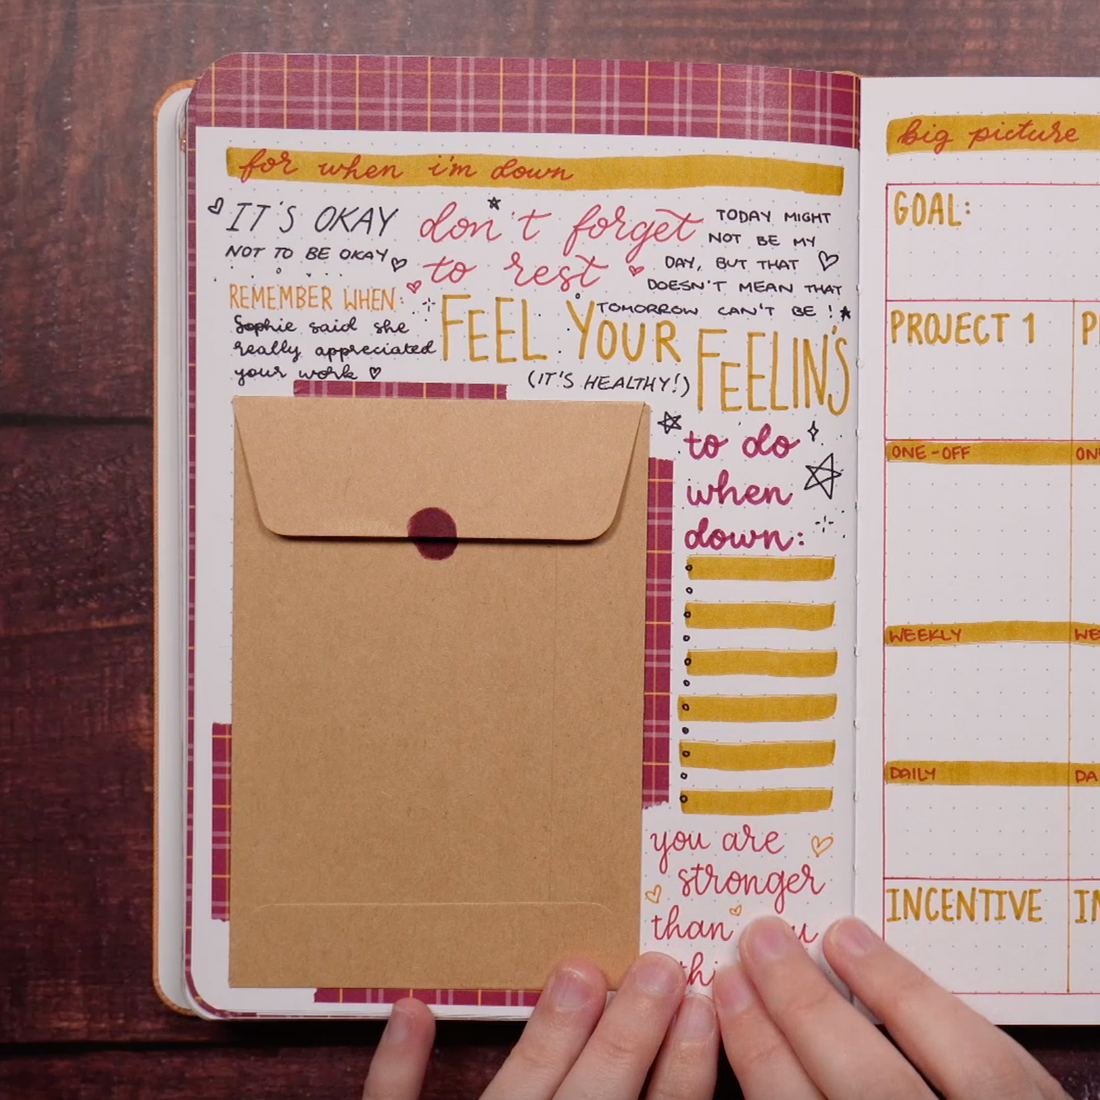 for when i'm down
IT'S OKAY
NOT TO BE OKAY
don't forget
to rest
TODAY MIGHT
NOT BE MY
DAY, BUT THAT
DOESN'T MEAN THAT
TOMORROW CAN'T BE !
REMEMBER WHEN:
Sophie said she
really appreciated
your work
FEEL YOUR
FEELIN'S
(IT'S HEALTHY!)
to do
when
down:
you are
stronger
than
big picture
GOAL:
PROJECT 1
ONE-OFF
WEEKLY
DAILY
INCENTIVE